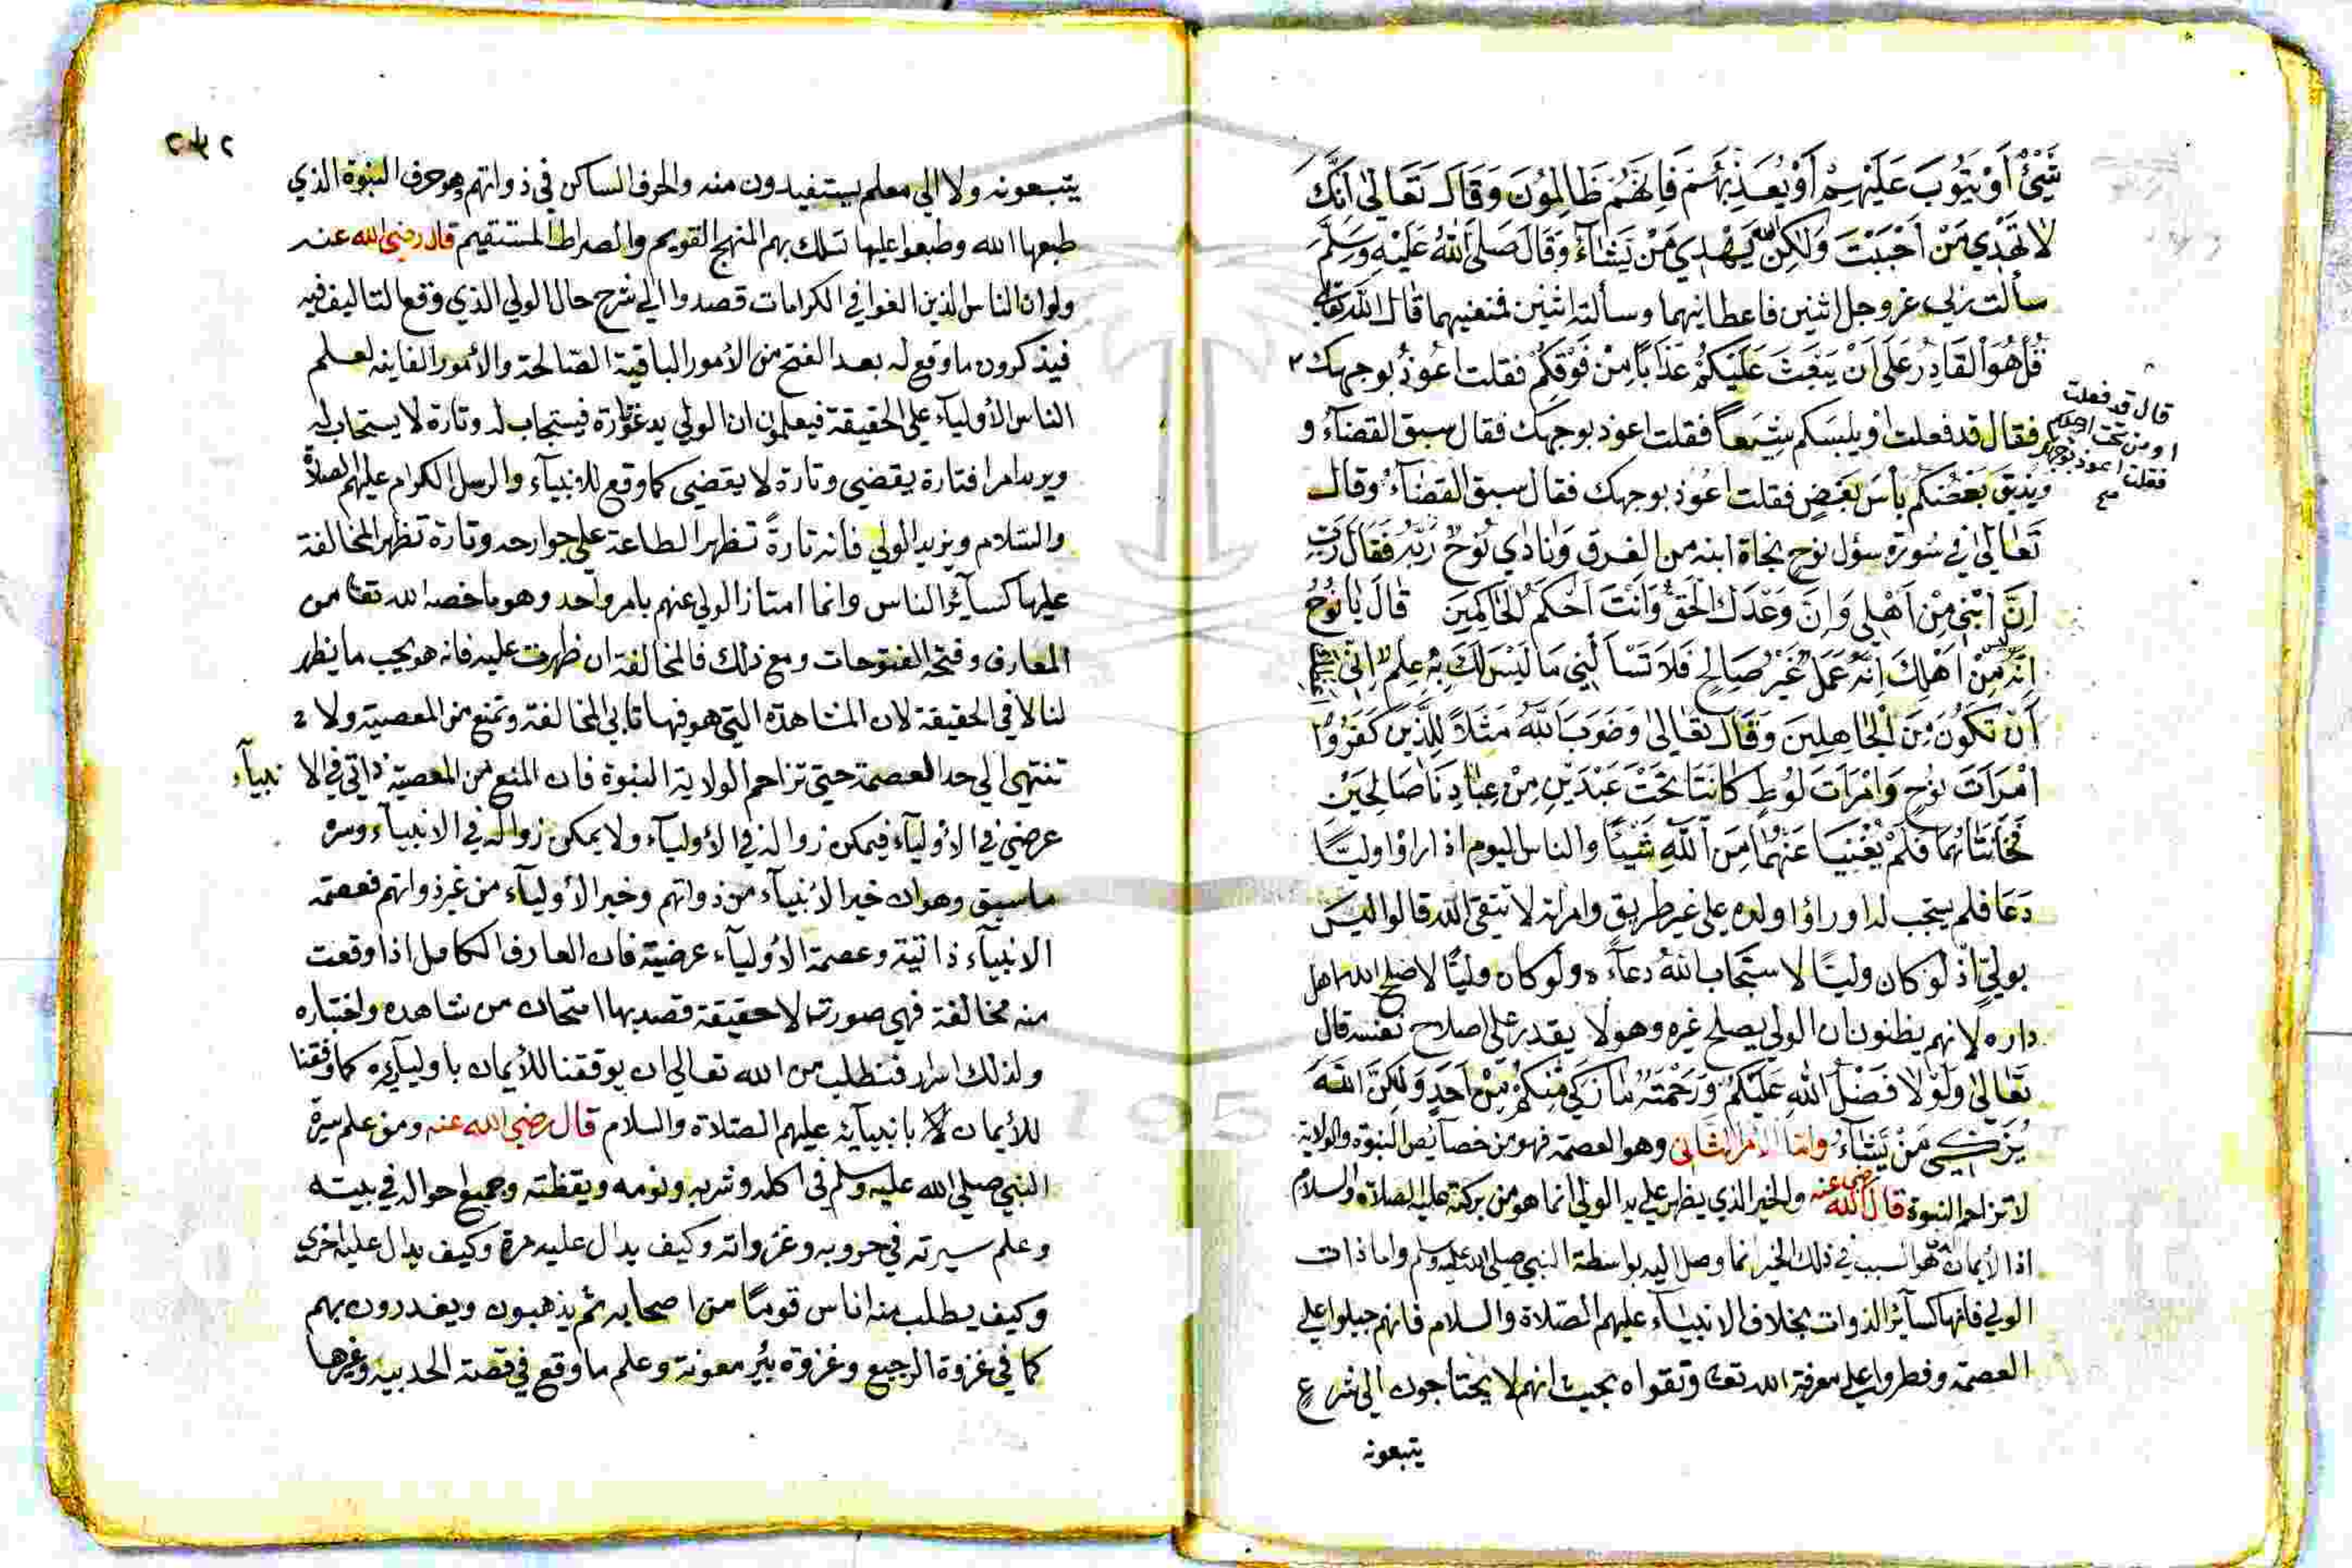 شَيْئٌ أَوْ يَتُوبَ عَلَيْهِمْ أَوْ يُعَذِّبَهُمْ فَإِنَّهُمْ ظَالِمُونَ وَقَالَ تَعَالَىٰ اَنَّكَ
لَا تَهْدِي مَنْ اَحْبَبْتَ وَلَكِنَّ اللَّه يَهْدِي مَنْ يَشَاءُ وَقَالَ صَلَّى اللهُ عَلَيْهِ وَسَلَّمَ
سألت ربي عز وجل اثنين فاعطانيهما وسألته اثنين فمنعنيهما قال الله تعالى
قُلْ هُوَ الْقَادِرُ عَلَى أَنْ يَبْعَثَ عَلَيْكُمْ عَذَابًا مِنْ فَوْقِكُمْ فقلت اعوذ بوجهك
قال قد فعلت
او من تحت ارجلكم
فقلت اعوذ بوجهك
صح
فقال قد فعلت او يلبسكم شِيَعاً فقلت اعوذ بوجهك فقال سبق القضآء و
وَيُذِيقَ بَعْضَكُم بَأسَ بَعْضٍ فقلت اعوذ بوجهك فقال سبق القضآء وقال
تعالى في سورة سؤل نوح نجاة ابنه من الغرق وَنَادَي نُوحٌ رَبَّهُ فَقَالَ رَبِّ
اِنَّ ابْنِي مِنْ اَهْلِي وَاِنَّ وَعْدَكَ الْحَقُّ وَاَنْتَ اَحْكَمُ الْحَاكِمِينَ قَالَ يَا نُوحُ
اِنَّهُ لَيْسَ مِنْ اَهْلِكَ اِنَّهُ عَمَلٌ غَيْرُ صَالِحٍ فَلَا تَسْأَلْنِي مَا لَيْسَ لَكَ بِهِ عِلْمٌ اِنِّي اَعِظُكَ
اَنْ تَكُونَ مِنَ الْجَاهِلِينَ وَقَالَ تَعَالَى وَضَرَبَ اللَّهُ مَثَلًا لِلَّذِينَ كَفَرُوا
اِمْرَاَتَ نُوحٍ وَامْرَاَتَ لُوطٍ كَانَتَا تَحْتَ عَبْدَيْنِ مِنْ عِبَادِنَا صَالِحَيْنِ
فَخَانَتَاهُمَا فَلَمْ يُغْنِيَا عَنْهُمَا مِنَ اللَّهِ شَيْئًا والناس اليوم اذا راؤا وليًّا
دَعَا فلم يستجب له او راؤا اولده على غير طريق وامراته لا تتقى الله قالوا ليس
بوليّ اذ لو كان وليًا لاستجاب اللهُ دعآءه ولو كان وليًّا لاصلح الله اهل
داره لانهم يظنون ان الولي يصلح غيره وهو لا يقدر على اصلاح نفسه قال
تَعَالَى وَلَوْلَا فَضْلُ اللَّهِ عَلَيْكُمْ وَرَحْمَتُهُ مَا زَكَى مِنْكُمْ مِنْ اَحَدٍ وَلَكِنَّ اللَّهَ
يُزَكِّي مَنْ يَشَاءُ واما الامر الثاني وهو العصمة فهو من خصآيص النبوة والولاية
لا تزاحم النبوة قال رضي الله عنه والخير الذي يظهر على يد الولي انما هو من بركته عليه الصلاة والسلام
اذ الايمان الذي هو السبب في ذلك الخير انما وصل اليه بواسطة النبي صلى الله عليه وسلم واما ذات
الولي فانها كسآئر الذوات بخلاف الانبيآء عليهم الصلاة والسلام فانهم جبلوا على
العصمة وفطروا على معرفة الله تعا وتقواه بحيث انهم لا يحتاجون الى شرع
يتبعونه
٢٣٢
يتبعونه ولا الي معلم يستفيدون منه والحرف الساكن في ذواتهم وهو حرف النبوة الذي
طبعها الله وطبعوا عليها تسلك بهم المنهج القويم والصراط المستقيم قال رضي الله عنه
ولو ان الناس الذين الفوا في الكرامات قصدوا الي شرح حال الولي الذي وقع التاليف فيه
فيذكرون ما وقع له بعد الفتح من الأمور الباقية الصالحة والأمور الفانيه لعلم
الناس الأوليآء على الحقيقة فيعلمون ان الولي يدعو تارة فيستجاب له وتارة لا يستجاب له
ويريد امرا فتارة يقضي وتارة لا يقضي كما وقع للانبيآء والرسل الكرام عليهم الصلاة
والسّلام ويزيد الولي فانه تارةً تظهر الطاعة على جوارحه وتارة تظهر المخالفة
عليها كسآئر الناس وانما امتاز الولي عنهم بامر واحد وهو ما خصه الله تعا من
المعارف وفتحه الفتوحات ومع ذلك فالمخالفة ان ظهرت عليه فانه هو بحب ما يظهر
لنا لا في الحقيقة لان المشاهدة التي هو فيها تابي المخالفة وتمنع من المعصية ولا
تنتهي الي حد العصمة حتى تزاحم الولاية النبوة فان المنع من المعصية ذاتي في الانبيآء
عرضي في الأوليآء فيمكن زواله في الأوليآء ولا يمكن زواله في الانبيآء وسره
ما سبق وهو ان خير الأنبيآء من ذواتهم وخير الأوليآء من غير ذواتهم فعصمة
الانبيآء ذاتية وعصمة الأوليآء عرضية فان العارف الكامل اذا وقعت
منه مخالفة فهي صورتا لا حقيقة قصد بها امتحان من شاهده واختباره
ولذلك اسرار فنطلب من الله تعالى ان يوفقنا للأيمان باوليآيه كما وفقنا
للأيمان بانبيآيه عليهم الصلاة والسلام قال رضي الله عنه ومن علم سيرة
النبي صلى الله عليه وسلم في اكله وشربه ونومه ويقظته وجميع احواله في بيته
وعلم سيرته في حروبه وغزواته وكيف يدال عليه مرة وكيف يدال عليه اخرى
وكيف يطلب منه اناس قومًا من اصحابه ثم يذهبون ويغدرون بهم
كما في غزوة الرجيع وغزوة بئر معونة وعلم ما وقع في قصة الحديبيه وغيرها